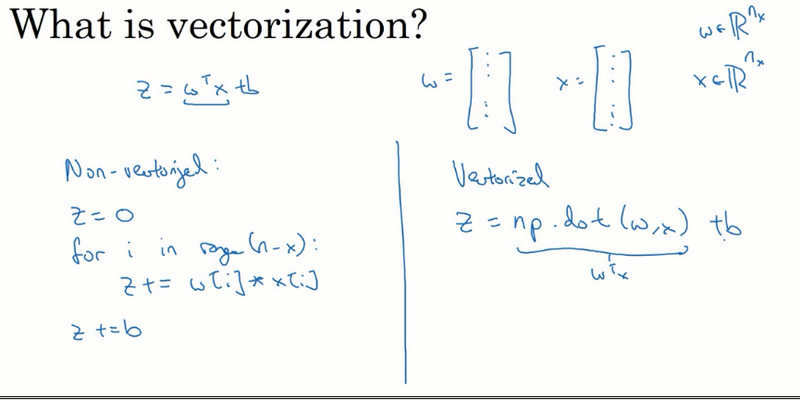 What is vectorization?
z = wᵀx + b
w = [⋮ ⋮]
x = [⋮ ⋮]
w ∈ ℝⁿˣ
x ∈ ℝⁿˣ
Non-vectorized:
z = 0
for i in range(n-x):
z += w[i] * x[i]
z += b
Vectorized
z = np.dot(w,x) + b
wᵀx